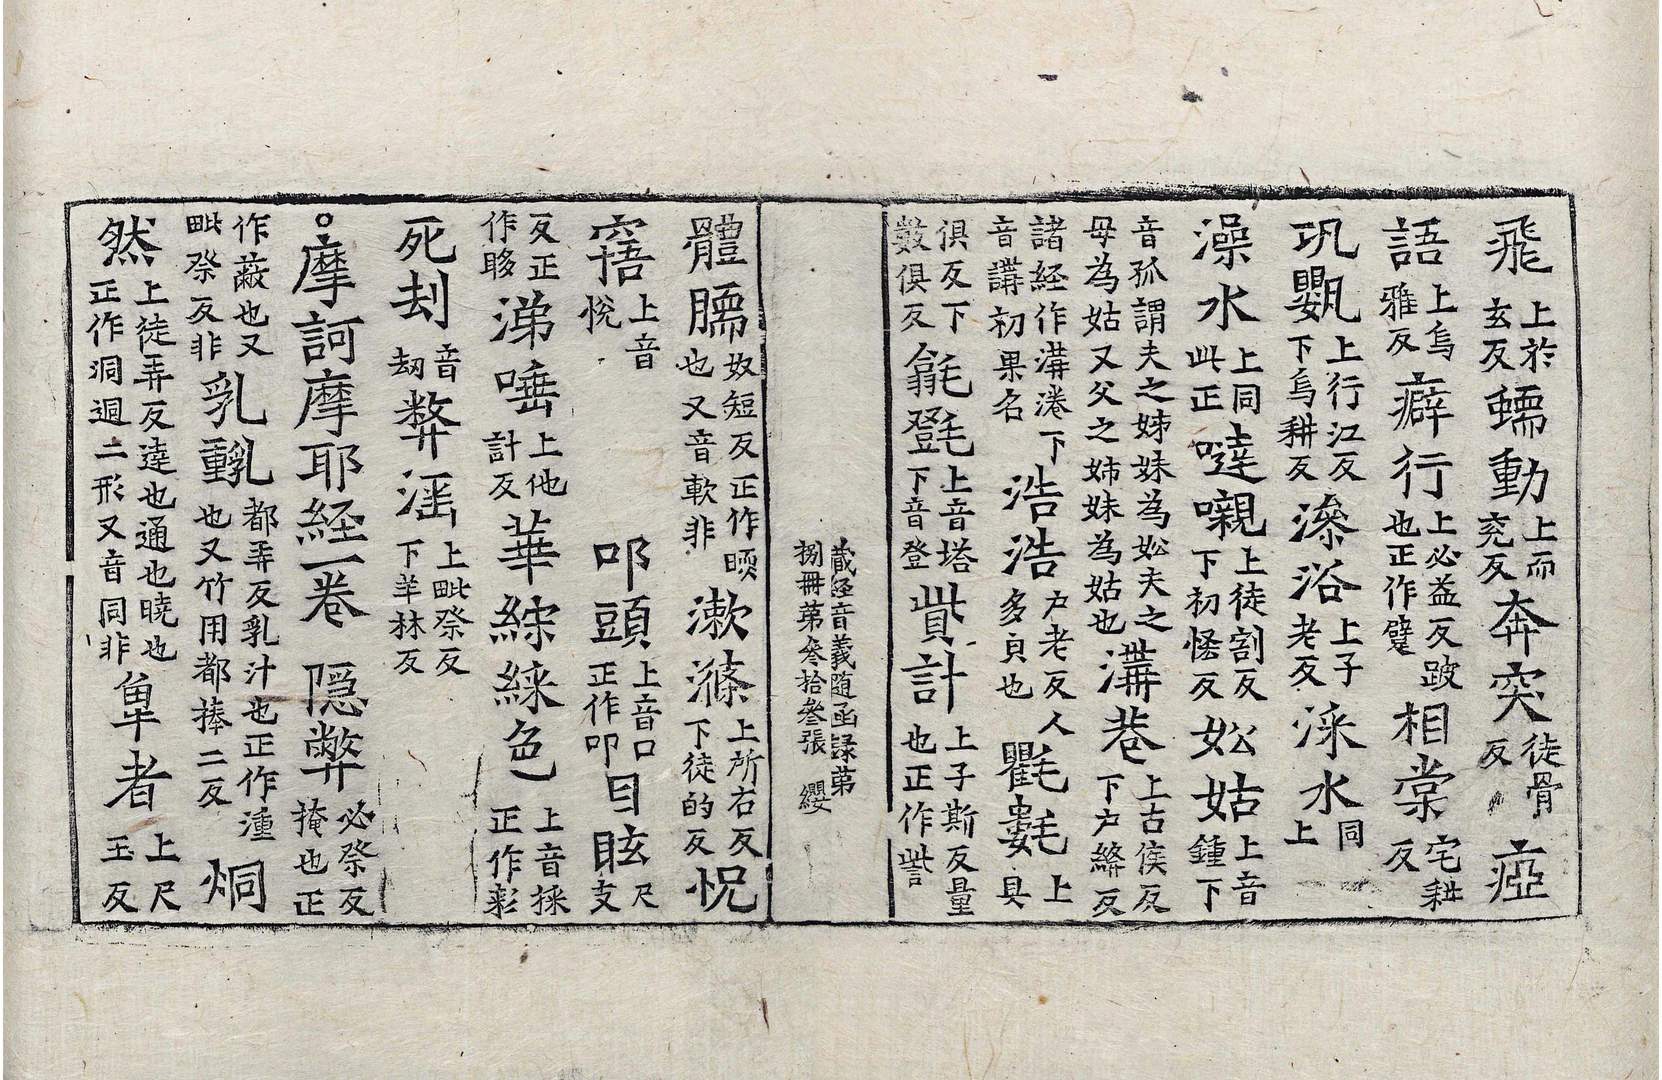 飛上於玄反蝡動上而兖反奔突徒骨反瘂
語上烏雅反癖行上必益反跛也正作躄相棠宅耕反
巩甖上行江反下烏耕反㴾浴上子老反㴾水同上
澡水上同此正噠嚫上徒割反下初愅反妐姑上音鍾下
音孤謂夫之姊妹為妐夫之母為姑又父之姉妹為姑也溝巷上古侯反下户絳反
諸經作溝港下音講初果名浩浩户老反人多皃也氍氀上具
俱反下數俱反㲮㲪上音塔下音登貲計上子斯反量也正作訾
藏经音義随函録第捌冊第叅拾叅張 纓
體腝奴短反正作㬉也又音軟非漱滌上所右反下徒的反怳
㝛上音悅叩頭上音口正作叩目眩尺支
反正作眵涕唾上他計反華綵綵色上音採正作彩
死刦音刼弊滛上毗祭反下羊林反
。摩訶摩耶経一卷 隠弊必祭反掩也正
作蔽也又毗祭反非乳㼿都弄反乳汁也正作湩也又竹用都捧二反烔
然上徒弄反達也通也曉也正作洞迵二形又音同非𢍁者上尺玉反